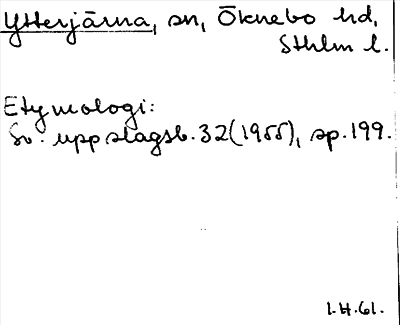 Ytterjärna, sn, Öknebo hd,
Sthlm l.
Etymologi:
Sv. uppslagsb. 32(1955), sp. 199.
I.H.61.